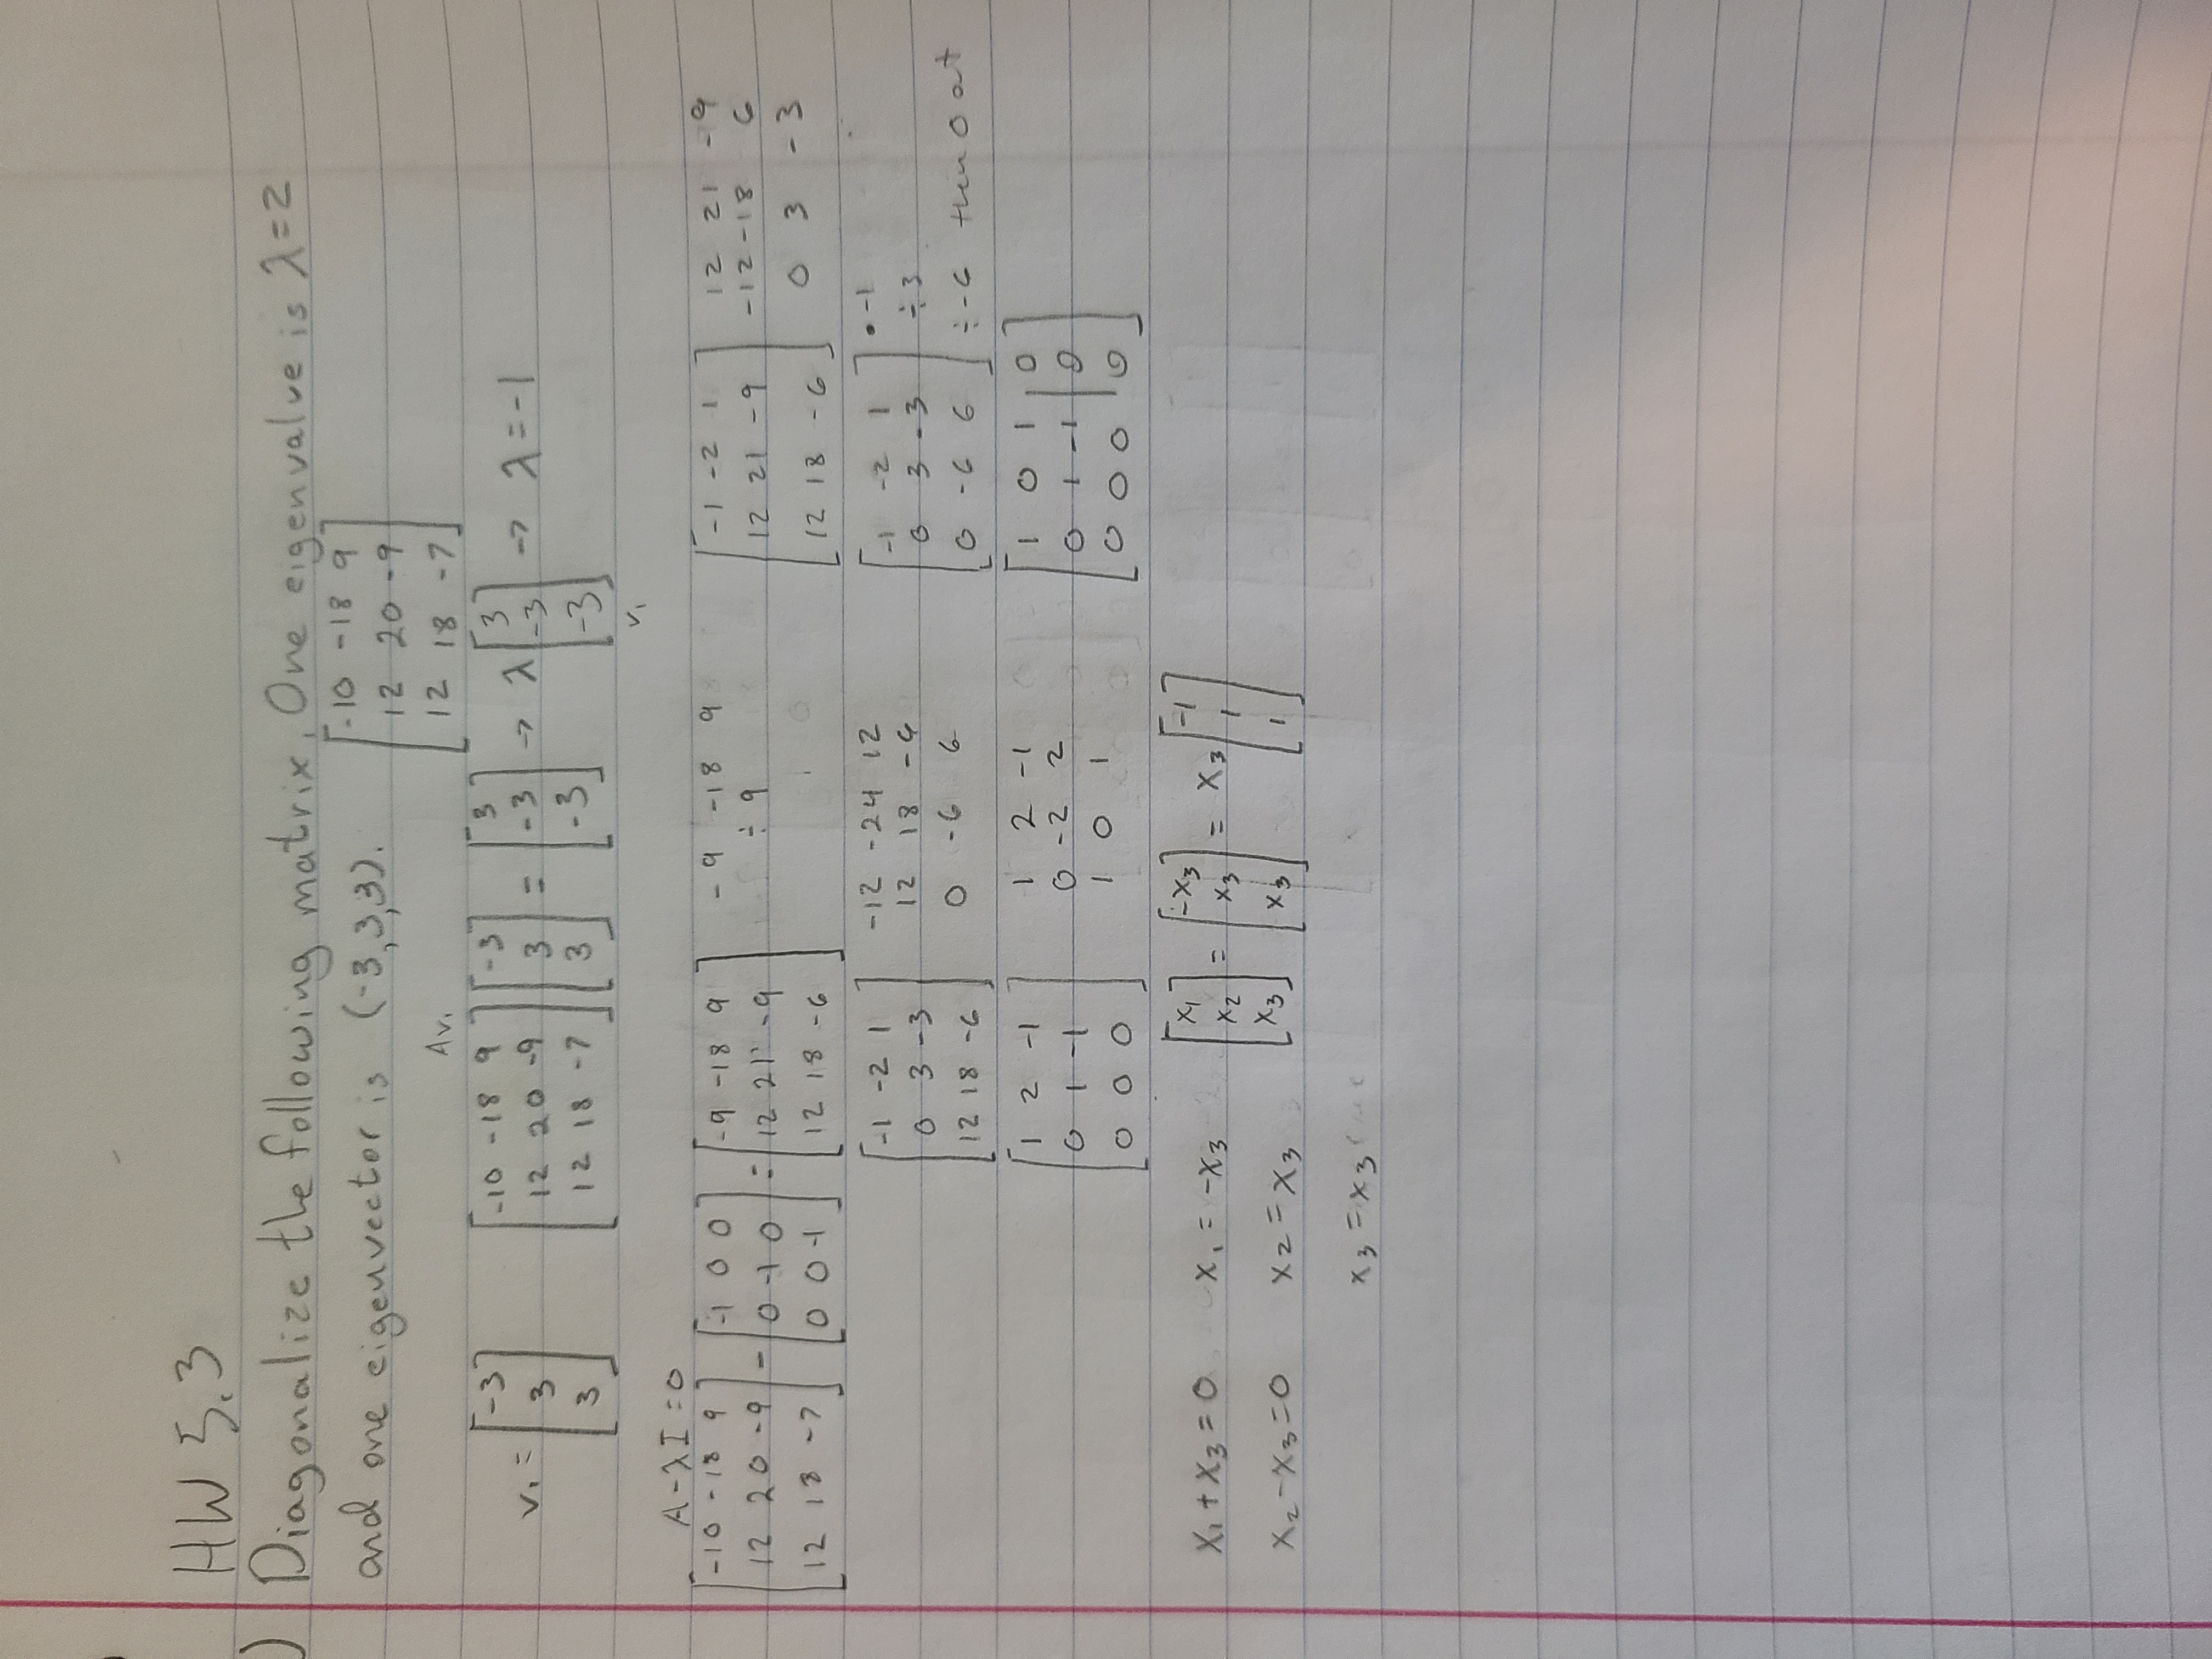 HW 5.3
) Diagonalize the following matrix. One eigenvalue is λ=2
and one eigenvector is (-3,3,3). [-10 -18 9
12 20 -9
12 18 -7]
Av₁
v₁ = [-3 3 3] [-10 -18 9; 12 20 -9; 12 18 -7] [-3 3 3] = [3 -3 -3] → λ [3 -3 -3] → λ = -1
v₁
A-λI=0
[-10 -18 9] - [-1 0 0] = [-9 -18 9] -9 -18 9 [-1 -2 1] 12 21 -9
[12 20 -9] [0 -1 0] [12 21 -9] ÷ 9 [12 21 -9] -12 -18 6
[12 18 -7] [0 0 -1] [12 18 -6] [12 18 -6] 0 3 -3
[-1 -2 1] -12 -24 12 [-1 -2 1] • -1
[0 3 -3] 12 18 -6 [0 3 -3] ÷3
[12 18 -6] 0 -6 6 [0 -6 6] ÷-6 then 0 out
[1 2 -1] 1 2 -1 [1 0 1 | 0]
[0 1 -1] 0 -2 2 [0 1 -1 | 0]
[0 0 0] 1 0 1 [0 0 0 | 0]
x₁+x₃=0 x₁ = -x₃ [x₁ x₂ x₃] = [-x₃ x₃ x₃] = x₃ [-1 1 1]
x₂-x₃=0 x₂=x₃
x₃=x₃